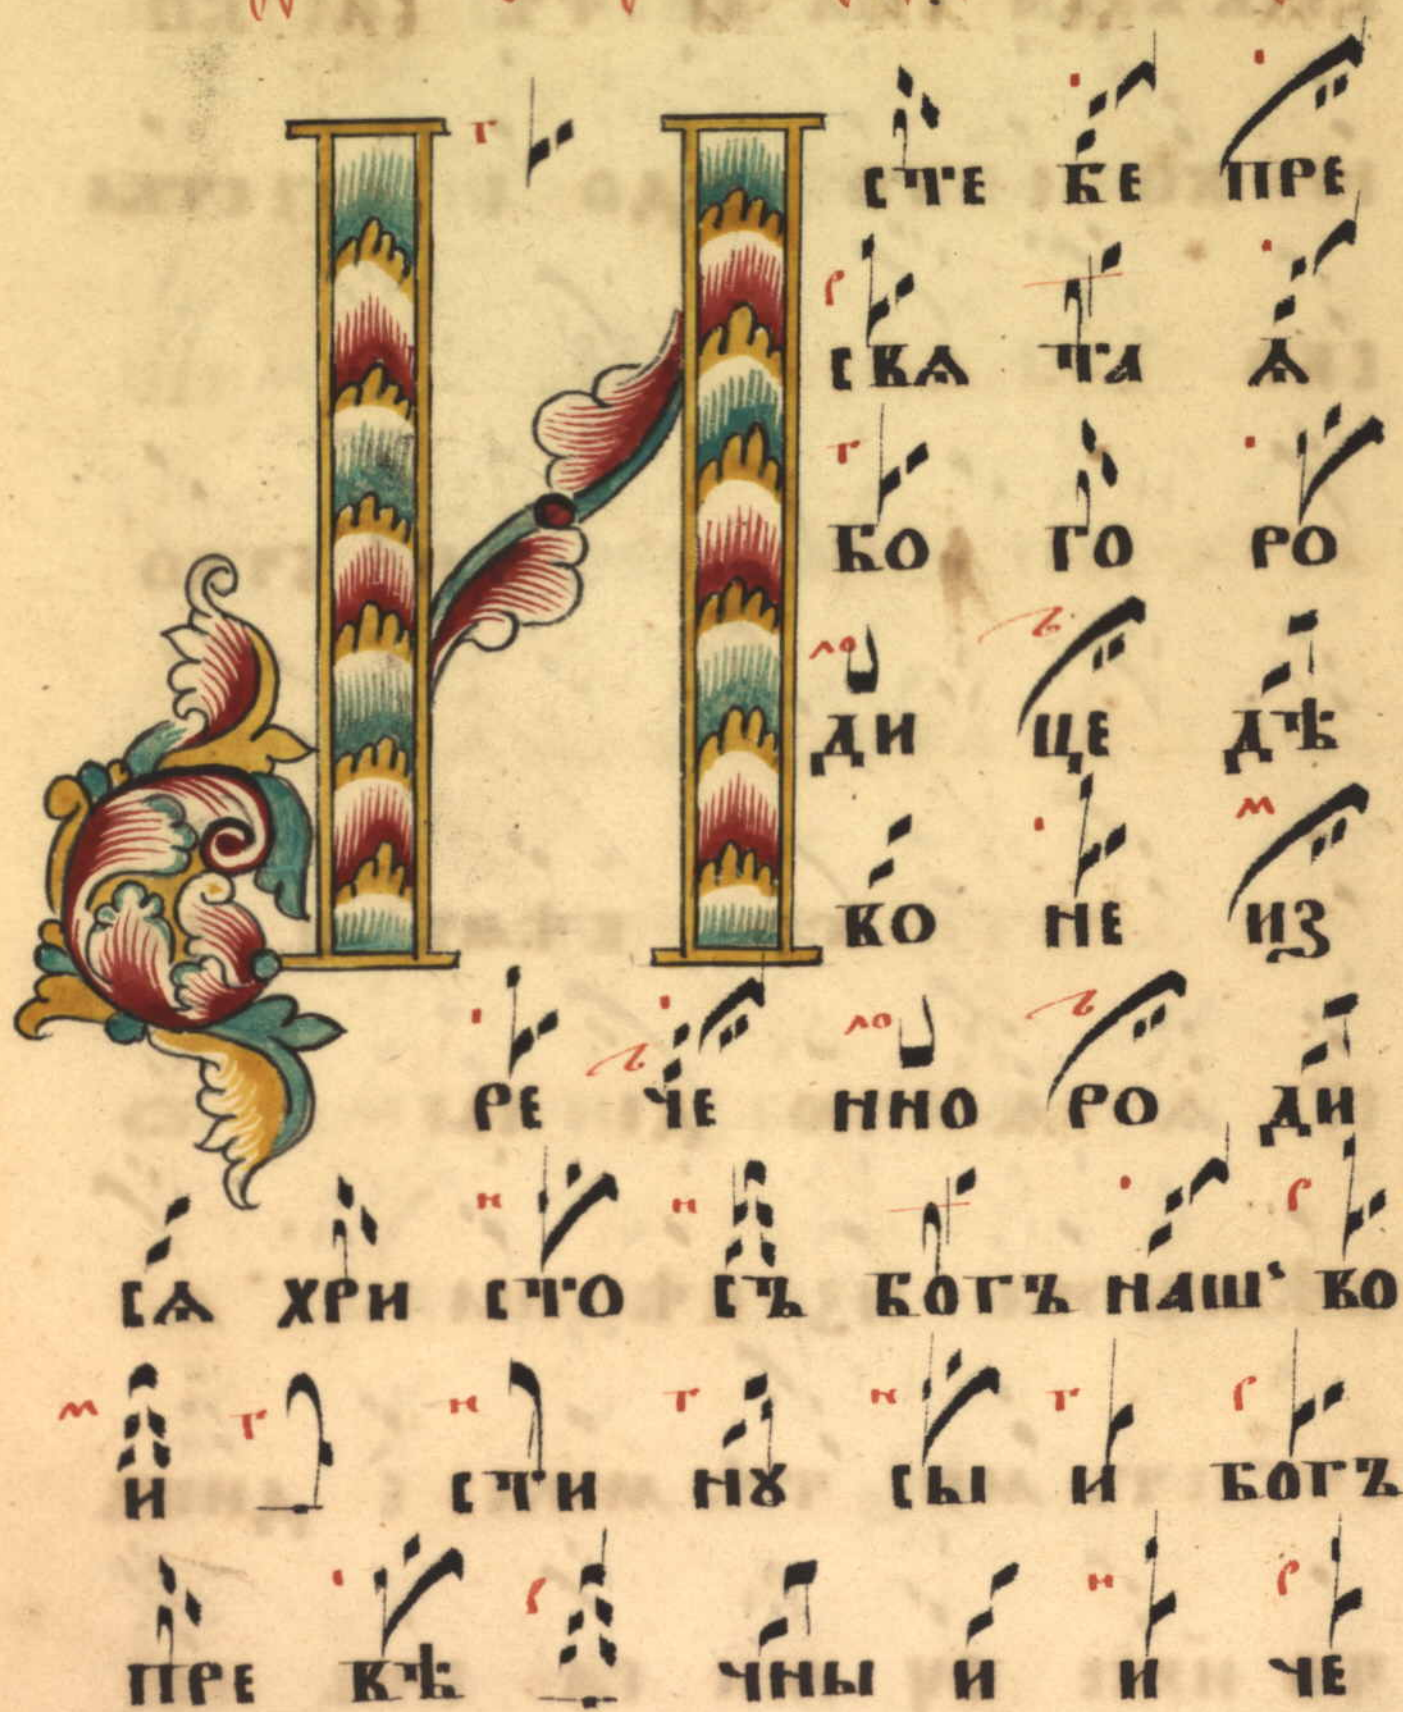 И СТЕ БЕ ПРЕ
СВѦ ТА Ѧ
БО ГО РО
ДИ ЦЕ ДѢ
ВО НЕ ИЗ
РЕ ЧЕ ННО РО ДИ
СѦ ХРИ СТО СЪ БОГЪ НАШ' ВО
И СТИ НȢ СЫ И БОГЪ
ПРЕ ВѢ ЧНЫ И И ЧЕ